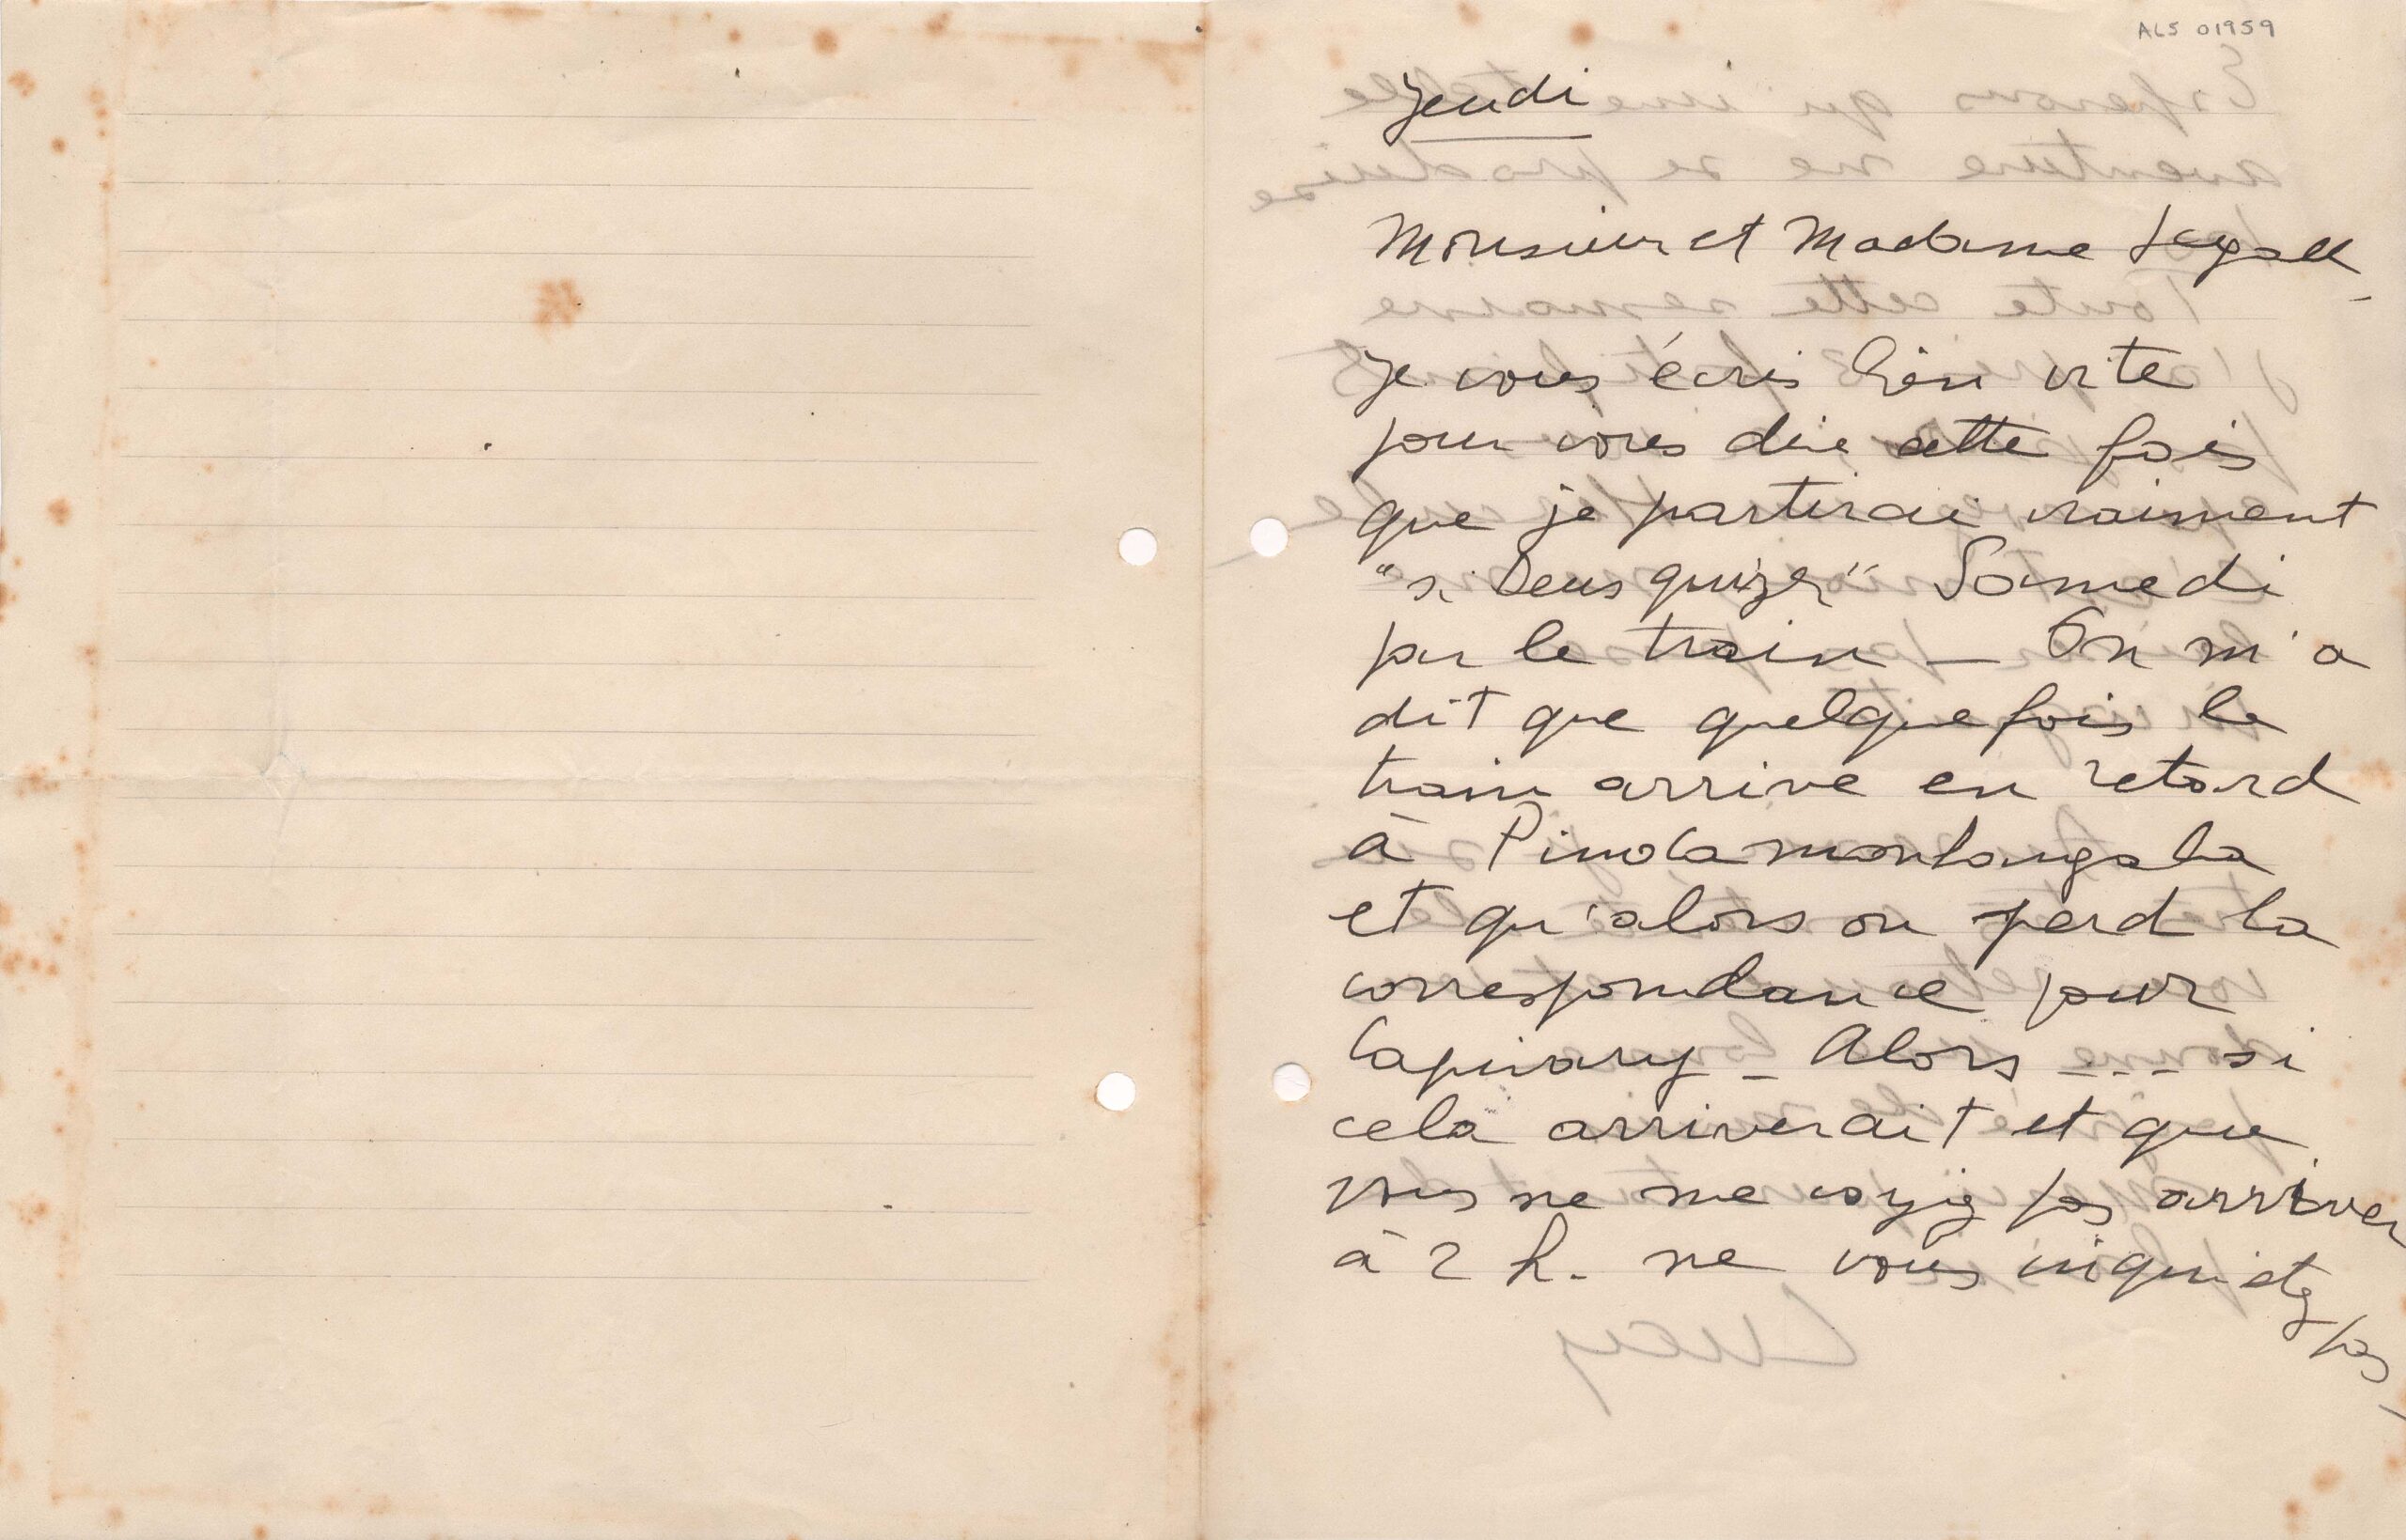 ALS 01959
Jeudi
Monsieur et Madame Segall
Je vous écris bien vite
pour vous dire cette fois
que je partirai vraiment
"si Deus quizer" Samedi
par le train — On m'a
dit que quelquefois le
train arrive en retard
à Pindamonhangaba
et qu'alors on perd la
correspondance pour
Capivary – Alors --- si
cela arriverait et que
vous ne me voyiez pas arriver
à 2 h. ne vous inquietez
pas –